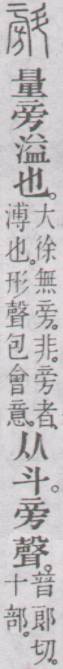 量旁溢也。
大徐無旁。非。旁者
溥也。形聲包會意。
从斗。旁聲。
普郎切。
十部。